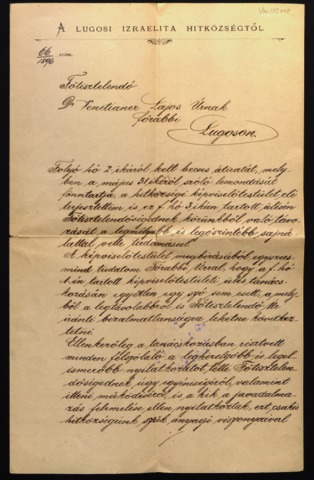 A LUGOSI IZRAELITA HITKÖZSÉGTŐL
66 szám.
1896
Főtisztelendő
Dr Venetianer Lajos Úrnak
főrabbi
Lugoson.
Folyó hó 2 ikáról kelt becses átiratát, mely-
ben a május 31 ikéről szóló lemondását
fönntartja, a hitközségi képviselőtestület elé
terjesztettem is ez f. hó 3 ikán tartott ülésén
Főtisztelendőségednek körünkből való távo-
zását a legmélyebb és legőszintébb sajná-
lattal vette tudomásul.
A képviselőtestület megbízásából egyszers-
mind tudatom Főrabbi Úrral, hogy a f. hó
1 én tartott képviselőtestületi ülés tanács-
kozásán egyetlen egy szó sem esett, a mely-
ből a legtávolabbról is Főtisztelendő Úr
iránti bizalmatlanságra lehetne következ-
tetni.
Ellenkezőleg a tanácskozásban résztvett
minden felszólaló a leghízelgőbb és legel-
ismerőbb nyilatkozatot tette Főtisztelen-
dőségednek, úgy egyéniségéről, valamint
itteni működéséről, is a kik a javadalma-
zás felemelése ellen nyilatkoztak, ezt csakis
hitközségünk anyagi viszonyaival